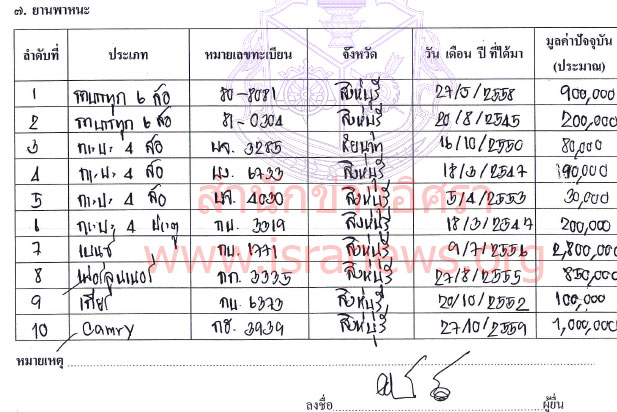 ๗. ยานพาหนะ
ลำดับที่ ประเภท หมายเลขทะเบียน จังหวัด วัน เดือน ปี ที่ได้มา มูลค่าปัจจุบัน (ประมาณ)
1 รถบรรทุก ๖ ล้อ 80-8081 สิงห์บุรี 27/5/2558 900,000
2 รถบรรทุก ๖ ล้อ 81-0304 สิงห์บุรี 20/8/2545 200,000
3 กะบะ 4 ล้อ 3285 ชัยนาท 16/10/2550 80,000
4 กะบะ 4 ล้อ 6733 สิงห์บุรี 18/3/2547 190,000
5 กะบะ 4 ล้อ 4030 สิงห์บุรี 5/4/2553 30,000
6 กะบะ 4 ประตู กบ. 3319 สิงห์บุรี 18/3/2547 200,000
7 เบนซ์ กบ. 1771 สิงห์บุรี 9/7/2556 2,800,000
8 ฟอร์จูนเนอร์ กก. 3335 สิงห์บุรี 27/8/2555 850,000
9 กบ. 6373 สิงห์บุรี 20/10/2552 100,000
10 Camry กช. 3939 สิงห์บุรี 27/10/2559 1,000,000
สำนักข่าวอิศรา
www.isranews.org
หมายเหตุ
ลงชื่อ ผู้ยื่น